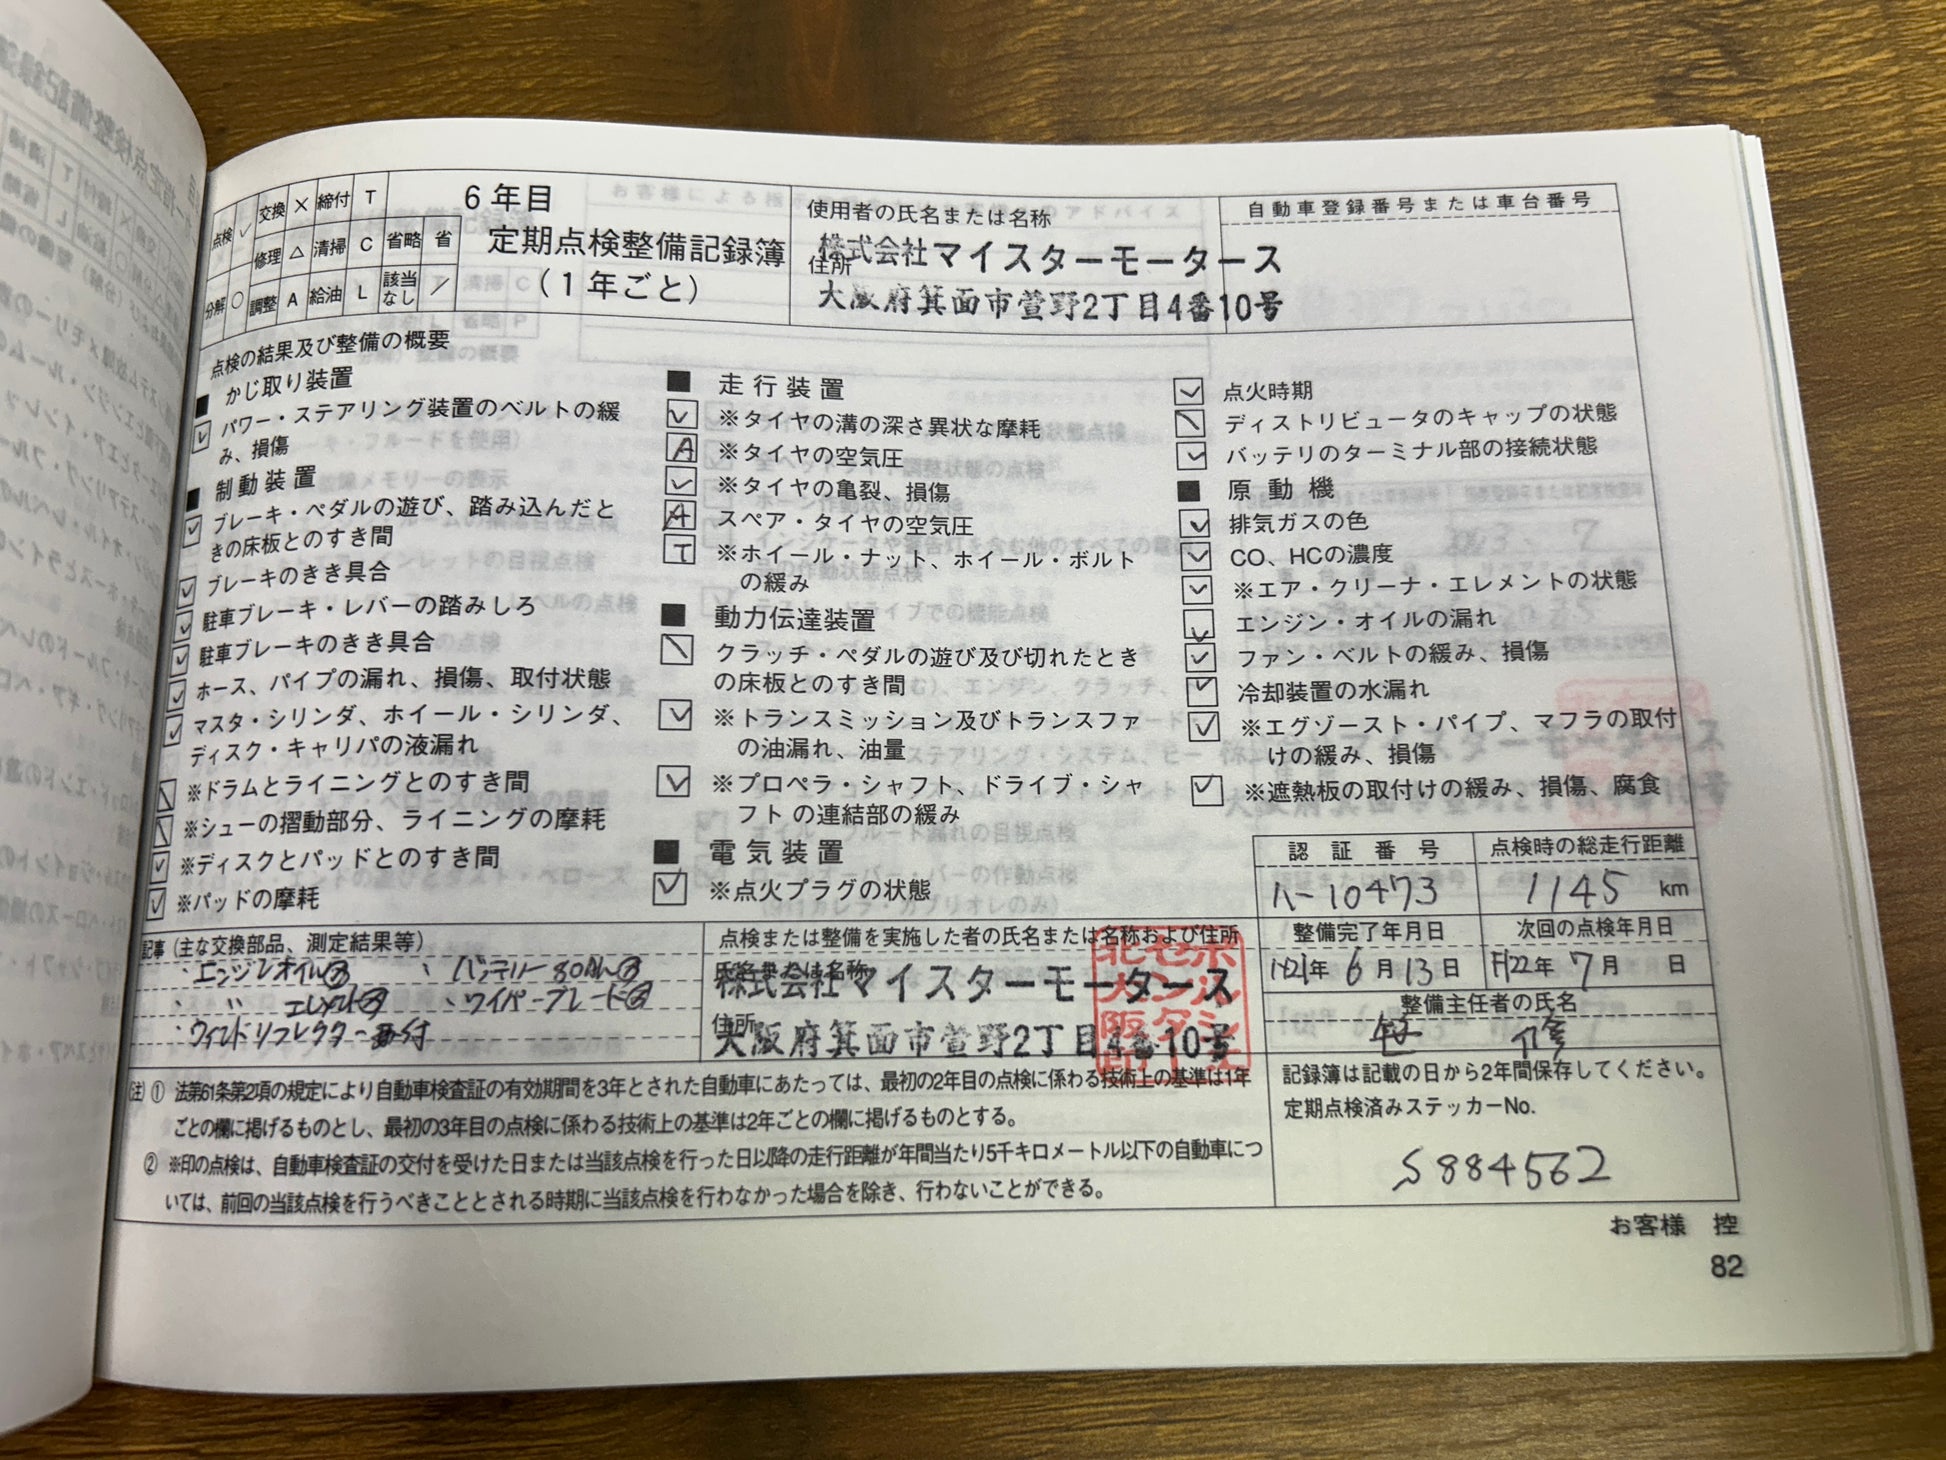 点検 ✓ 交換 × 締付 T
修理 △ 清掃 C 省略 省
分解 ○ 調整 A 給油 L 該当なし ／
6年目
定期点検整備記録簿
(1年ごと)
使用者の氏名または名称
株式会社マイスターモータース
住所
大阪府箕面市萱野2丁目4番10号
自動車登録番号または車台番号
点検の結果及び整備の概要
■ かじ取り装置
パワー・ステアリング装置のベルトの緩
み、損傷
■ 制動装置
ブレーキ・ペダルの遊び、踏み込んだと
きの床板とのすき間
ブレーキのきき具合
駐車ブレーキ・レバーの踏みしろ
駐車ブレーキのきき具合
ホース、パイプの漏れ、損傷、取付状態
マスタ・シリンダ、ホイール・シリンダ、
ディスク・キャリパの液漏れ
※ドラムとライニングとのすき間
※シューの摺動部分、ライニングの摩耗
※ディスクとパッドとのすき間
※パッドの摩耗
■ 走行装置
※タイヤの溝の深さ異状な摩耗
A ※タイヤの空気圧
※タイヤの亀裂、損傷
A スペア・タイヤの空気圧
T ※ホイール・ナット、ホイール・ボルト
の緩み
■ 動力伝達装置
クラッチ・ペダルの遊び及び切れたとき
の床板とのすき間
※トランスミッション及びトランスファ
の油漏れ、油量
※プロペラ・シャフト、ドライブ・シャ
フトの連結部の緩み
■ 電気装置
※点火プラグの状態
点火時期
ディストリビュータのキャップの状態
バッテリのターミナル部の接続状態
■ 原動機
排気ガスの色
CO、HCの濃度
※エア・クリーナ・エレメントの状態
エンジン・オイルの漏れ
ファン・ベルトの緩み、損傷
冷却装置の水漏れ
※エグゾースト・パイプ、マフラの取付
けの緩み、損傷
※遮熱板の取付けの緩み、損傷、腐食
認証番号 点検時の総走行距離
ハ-10473 1145 km
整備完了年月日 次回の点検年月日
2021年 6月13日 2022年 7月 日
整備主任者の氏名
修
記事(主な交換部品、測定結果等)
・エンジンオイル ・バッテリー 80Ah
・〃 エレメント ・ワイパーブレード
・ウィンドリフレクター
点検または整備を実施した者の氏名または名称および住所
氏名または名称
株式会社マイスターモータース
住所
大阪府箕面市萱野2丁目4番10号
(注)① 法第61条第2項の規定により自動車検査証の有効期間を3年とされた自動車にあたっては、最初の2年目の点検に係わる技術上の基準は1年
ごとの欄に掲げるものとし、最初の3年目の点検に係わる技術上の基準は2年ごとの欄に掲げるものとする。
② ※印の点検は、自動車検査証の交付を受けた日または当該点検を行った日以降の走行距離が年間当たり5千キロメートル以下の自動車につ
いては、前回の当該点検を行うべきこととされる時期に当該点検を行わなかった場合を除き、行わないことができる。
記録簿は記載の日から2年間保存してください。
定期点検済みステッカーNo.
S884562
お客様 控
82